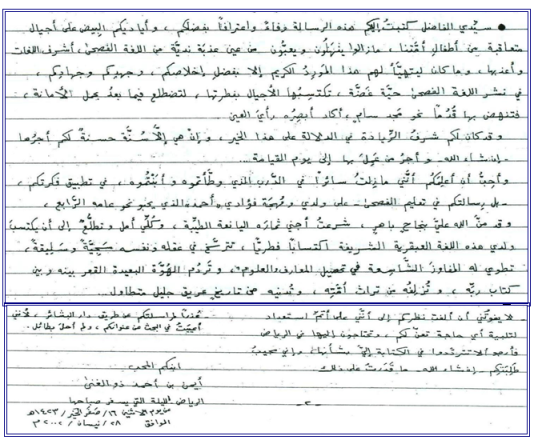 • سيدي الفاضل كتبتُ إليكم هذه الرسالة وفاءً واعترافاً بفضلكم ، وأياديكم البِيض على أجيال
متعاقبة من أطفال أمّتنا ، مازالوا ينهَلُون ويعبُّون من عينٍ عذبة نديّة من اللغة الفصحى ، أشرف اللغات
وأعذبها ، وما كان ليتهيّأ لهم هذا المورد الكريم إلا بفضل إخلاصكم ، وجهدكم وجهادكم ،
في نشر اللغة الفصحى حيّة غضّة ، تكتسبُها الأجيال بفطرتها ، لتضطلع فيما بعدُ بحمل الأمانة ،
فتنهض بها قُدُماً نحو مجد سامٍ ، أكاد أُبصِرُه رأيَ العين .
وقد كان لكم شرفُ الرِّيادة في الدلالة على هذا الخير ، وإنْ هي إلّا سُنّة حسنة لكم أجرُها
- إن شاء الله - وأجرُ من عَمِلَ بها إلى يوم القيامة ...
وأحِبُّ أن أُعلِمَكم أنّني مازلتُ سائراً في الدَّرب الذي وطّأتموه وأنَبْتُموه ، في تطبيق فكرتكم ،
- بل رسالتكم في تعليم الفصحى - على ولدي ومُهجة فؤادي أحمد الذي يحبو نحو عامه الرّابع ،
وقد منّ الله عليّ بنجاح باهر ، شرعتُ أجني ثمارَه اليانعة الطيّبة ، وكُلّي أمل وتطلُّع إلى أن يكتسبَ
ولدي هذه اللغة العبقرية الشريفة اكتساباً فطريّاً ، تترسّخ في عقله ونفسه سَجيّةً وسَليقة ،
تطوي له المفاوزَ الشّاسعة في تحصيل المعارف والعلوم ، وتَردُم الهُوّة البعيدة القعر بينه وبين
كتاب ربّه ، وتُزلِفُه من تراث أمّته ، وتُدنيه من تاريخ عريق جليل متطاول ...
- لا يفوتُني أن ألفت نظركم إلى أنّني على أتمّ استعداد
لتلبية أي حاجة تعنّ لكم ، وتحتاجون إليها في الرياض
فأرجو ألا تترددوا في الكتابة إليّ بشأنها ، وإني مجيبٌ
طلبتَكم - إن شاء الله - ما قدَرتُ على ذلك
عُذراً لمراسلتكم عن طريق دار البشائر ، لأنني
أعييتُ في البحث عن عنوانكم ، ولم أحلَ بطائل .
ابنكم المحب
أيمن بن أحمد ذو الغنى
الرياض الليلة التي يسفر صباحها
عن يوم الاثنين ١٦/ صفر الخير / ١٤٢٣هـ
الموافق ٢٨/ نيسان / ٢٠٠٢م
- ٢ -